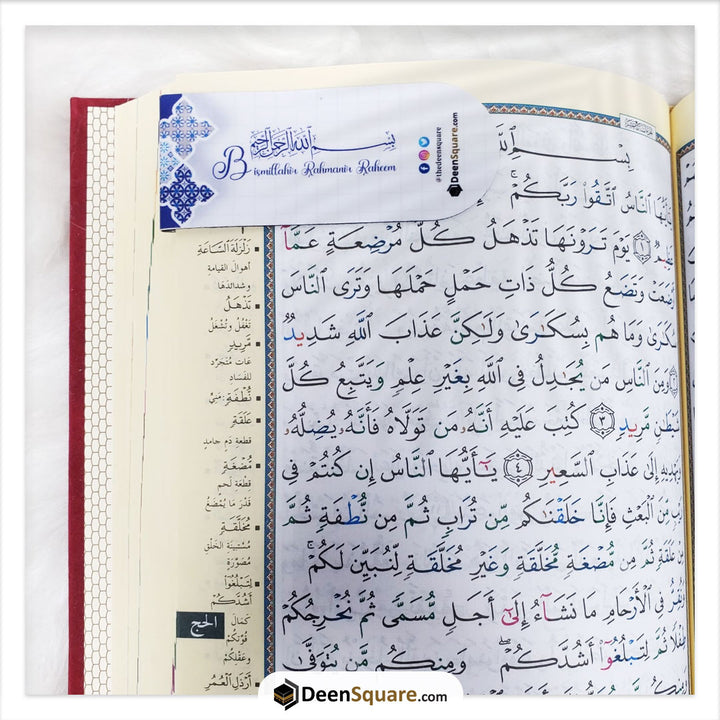 بِسْمِ اللهِ الرَّحْمٰنِ الرَّحِيْمِ
Bismillahir Rahmanir Raheem
@thedeensquare
DeenSquare.com
بِسْمِ ٱللَّهِ
ٱلنَّاسُ ٱتَّقُوا۟ رَبَّكُمْ ۚ
١ يَوْمَ تَرَوْنَهَا تَذْهَلُ كُلُّ مُرْضِعَةٍ عَمَّآ
وَتَضَعُ كُلُّ ذَاتِ حَمْلٍ حَمْلَهَا وَتَرَى ٱلنَّاسَ
وَمَا هُم بِسُكَٰرَىٰ وَلَٰكِنَّ عَذَابَ ٱللَّهِ شَدِيدٌ
وَمِنَ ٱلنَّاسِ مَن يُجَٰدِلُ فِى ٱللَّهِ بِغَيْرِ عِلْمٍ وَيَتَّبِعُ كُلَّ
مَّرِيدٍ ٣ كُتِبَ عَلَيْهِ أَنَّهُۥ مَن تَوَلَّاهُ فَأَنَّهُۥ يُضِلُّهُۥ
إِلَىٰ عَذَابِ ٱلسَّعِيرِ ٤ يَٰٓأَيُّهَا ٱلنَّاسُ إِن كُنتُمْ فِى
مِّنَ ٱلْبَعْثِ فَإِنَّا خَلَقْنَٰكُم مِّن تُرَابٍ ثُمَّ مِن نُّطْفَةٍ ثُمَّ
مِنْ عَلَقَةٍ ثُمَّ مِن مُّضْغَةٍ مُّخَلَّقَةٍ وَغَيْرِ مُخَلَّقَةٍ لِّنُبَيِّنَ لَكُمْ ۚ
فِى ٱلْأَرْحَامِ مَا نَشَآءُ إِلَىٰٓ أَجَلٍ مُّسَمًّى ثُمَّ نُخْرِجُكُمْ
ثُمَّ لِتَبْلُغُوٓا۟ أَشُدَّكُمْ ۖ وَمِنكُم مَّن يُتَوَفَّىٰ
زَلْزَلَةَ السَّاعَةِ
أهوال القيامة
وشدائدها
تَذْهَلُ
تَغْفُلُ وتُشْغَلُ
مَّرِيدٍ
عَاتٍ مُتَجَرِّدٍ
للفَسَادِ
نُّطْفَةٍ: مَنِيٍّ
عَلَقَةٍ
قطعةِ دَمٍ جامدٍ
مُّضْغَةٍ
قطعةِ لَحْمٍ
قَدْرَ مَا يُمْضَغُ
مُّخَلَّقَةٍ
مُسْتَبِينَةِ الخَلْقِ
مُصَوَّرَةٍ
لِتَبْلُغُوٓا۟
أَشُدَّكُمْ
كَمَالَ
قُوَّتِكُمْ
وعَقْلِكُمْ
أَرْذَلِ الْعُمُرِ
الحج
DeenSquare.com